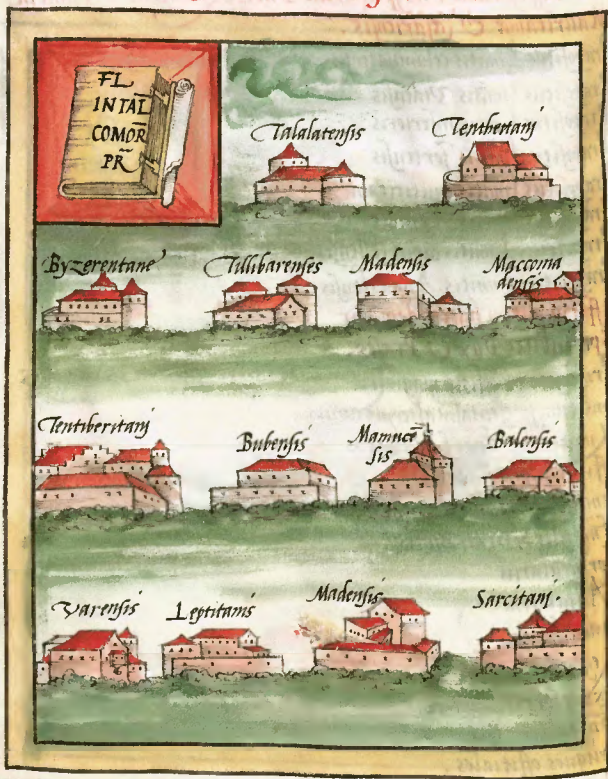 FL
INTAL
COMOR
PR
Talalatensis
Tenthettanj
Byzerentane
Tillibarenses
Madensis
Maccoma
densis
Tentiberitanj
Bubensis
Mamucē
sis
Balensis
Varensis
Leptitanis
Madensis
Sarcitanj